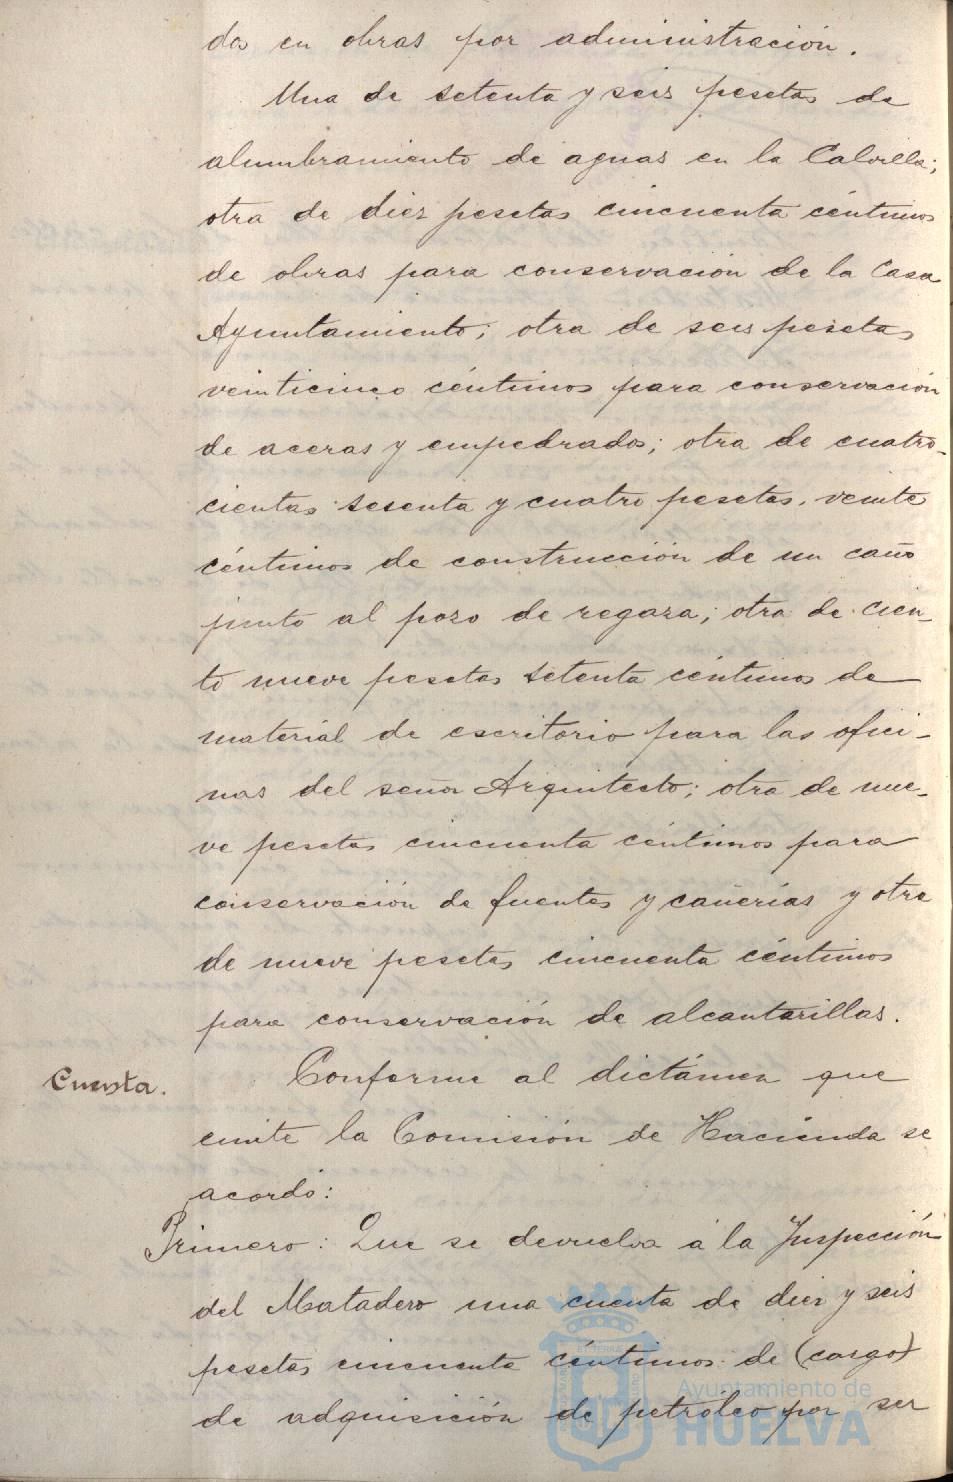 da en obras por administración.
Una de setenta y seis pesetas de
alumbramiento de aguas en la Calvilla;
otra de diez pesetas cincuenta céntimos
de obras para conservación de la Casa
Ayuntamiento; otra de seis pesetas
veinticinco céntimos para conservación
de aceras y empedrados; otra de cuatro-
cientas sesenta y cuatro pesetas veinte
céntimos de construcción de un caño
junto al pozo de regaza; otra de cien-
to nueve pesetas setenta céntimos de
material de escritorio para las ofici-
nas del señor Arquitecto; otra de nue-
ve pesetas cincuenta céntimos para
conservación de fuentes y cañerías y otra
de nueve pesetas cincuenta céntimos
para conservación de alcantarillas.
Cuenta.
Conforme al dictámen que
emite la Comisión de Hacienda se
acordó:
Primero: Que se devuelva á la Inspección
del Matadero una cuenta de diez y seis
pesetas cincuenta céntimos de (cargo)
de adquisición de petróleo por ser
Ayuntamiento de
HUELVA